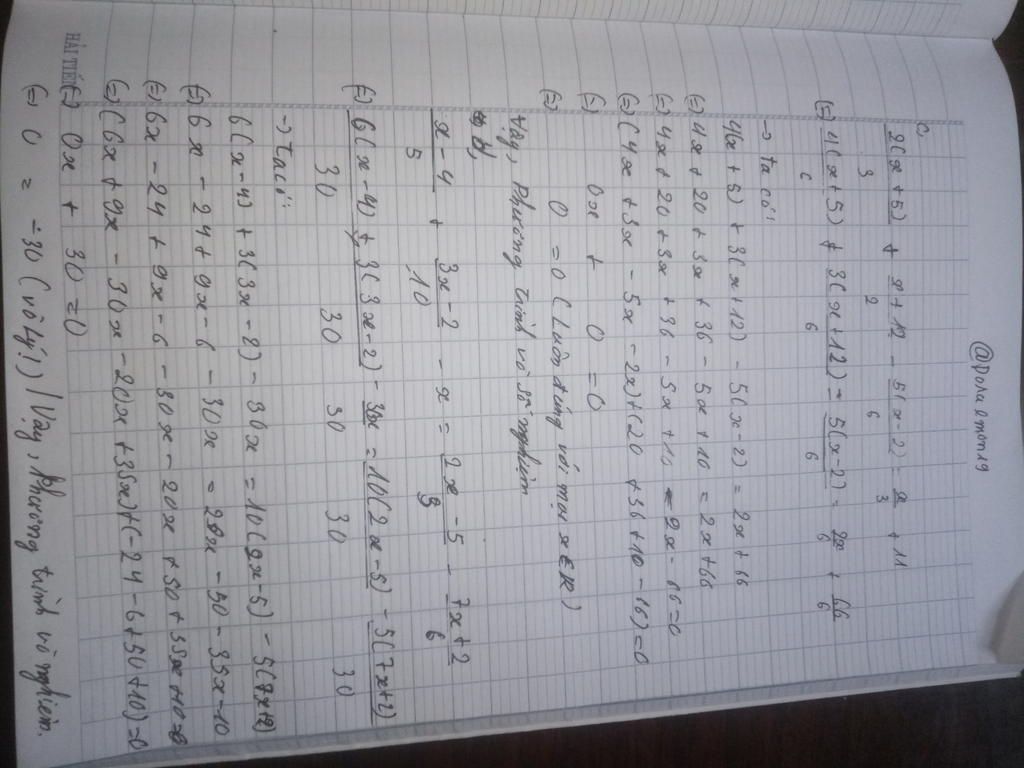 @Doraemon19
c.
2(x+5)/3 + x+12/2 - 5(x-2)/6 = x/3 + 11
(=) 4(x+5)/6 + 3(x+12)/6 - 5(x-2)/6 = 2x/6 + 66/6
→ Ta có:
4(x+5) + 3(x+12) - 5(x-2) = 2x+66
(=) 4x+20 + 3x+36 - 5x+10 = 2x+66
(=) 4x+20+3x+36-5x+10-2x-66=0
(=) (4x+3x-5x-2x)+(20+36+10-66)=0
(=) 0x + 0 = 0
(=) 0 = 0 (Luôn đúng với mọi x ∈ R)
Vậy, Phương trình vô số nghiệm
d,
x-4/5 + 3x-2/10 - x = 2x-5/3 - 7x+2/6
(=) 6(x-4)/30 + 3(3x-2)/30 - 30x/30 = 10(2x-5)/30 - 5(7x+2)/30
→ Ta có:
6(x-4) + 3(3x-2) - 30x = 10(2x-5) - 5(7x+2)
(=) 6x - 24 + 9x - 6 - 30x = 20x - 50 - 35x - 10
(=) 6x - 24 + 9x - 6 - 30x - 20x + 50 + 35x + 10 = 0
(=) (6x + 9x - 30x - 20x + 35x)+(-24-6+50+10)=0
HẢI TIẾN (=) 0x + 30 = 0
(=) 0 = -30 (vô lý) / Vậy, phương trình vô nghiệm.